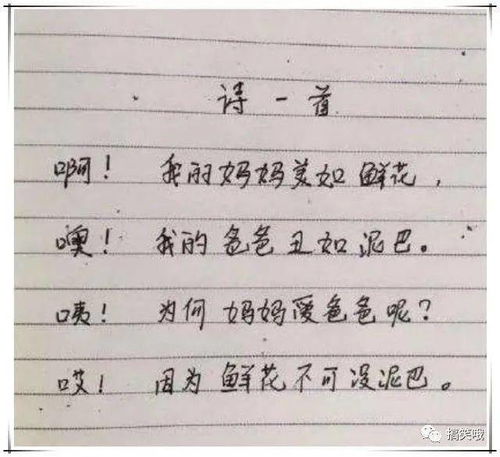 诗一首
啊！ 我的妈妈美如鲜花，
噢！ 我的爸爸丑如泥巴。
咦！ 为何妈妈爱爸爸呢？
哎！ 因为鲜花不可没泥巴。
搞笑哦